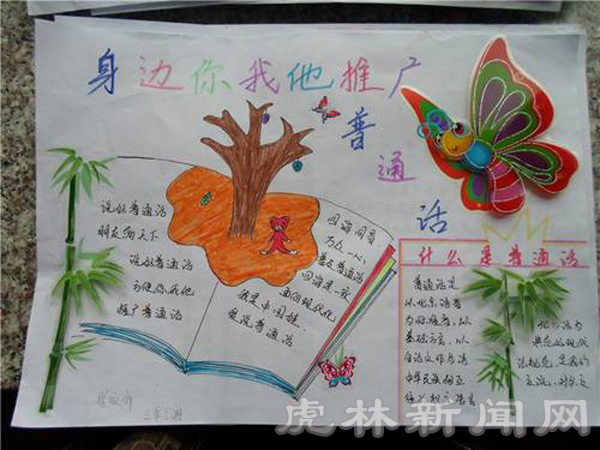 身边你我他推广
普通话
说好普通话
朋友满天下
说好普通话
方便你我他
推广普通话
四海同音
万众一心
普及普通话
四海是一家
面向现代化
我是中国娃
爱说普通话
什么是普通话
普通话是
以北京语音
为标准音，以
基础方言，以
白话文作
中华民族
北方话为
典范的现代
三年二班
虎林新闻网